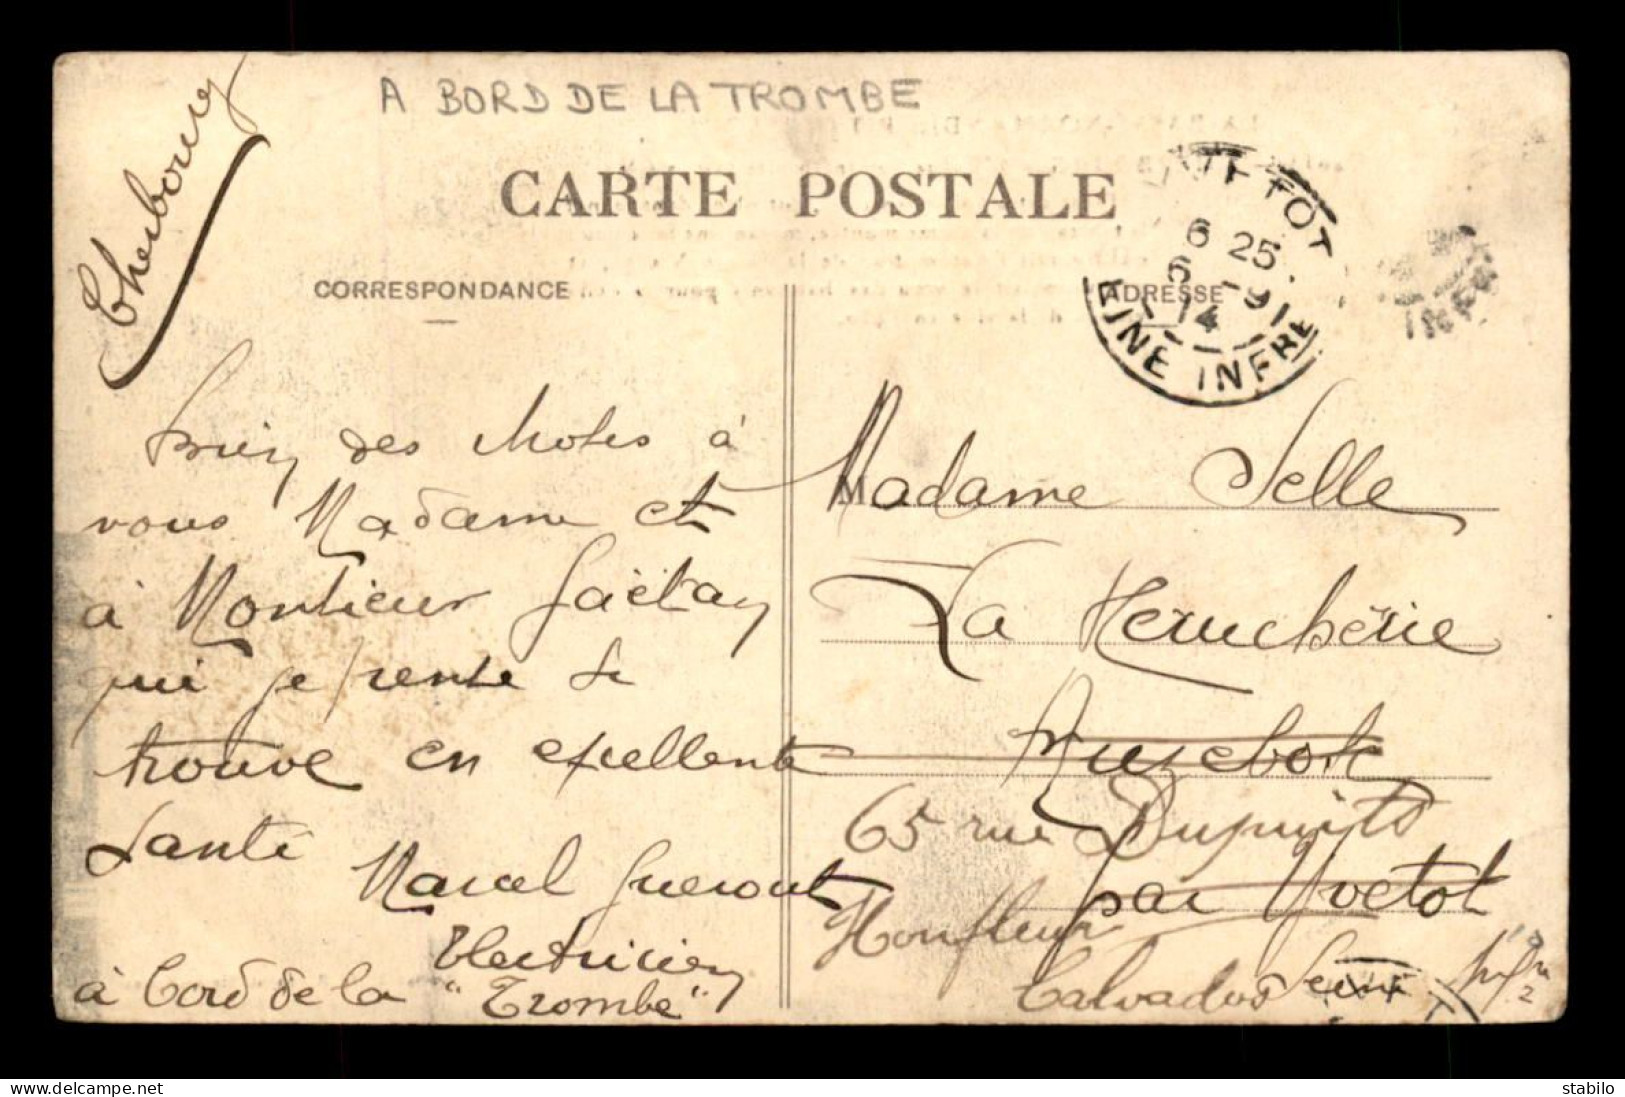 A BORD DE LA TROMBE
CARTE POSTALE
CORRESPONDANCE
ADRESSE
Cherbourg
Bien des choses à
vous Madame et
à Monsieur Gaëtan
qui je pense se
trouve en excellente
Santé
Marcel Guerout
Electricien
à bord de la "Trombe"
YVETOT
6 25
5 - 9
14
SEINE INFRE
INFRE
Madame Selle
La
par Yvetot
65 rue
Honfleur
Calvados
Seine
stabilo